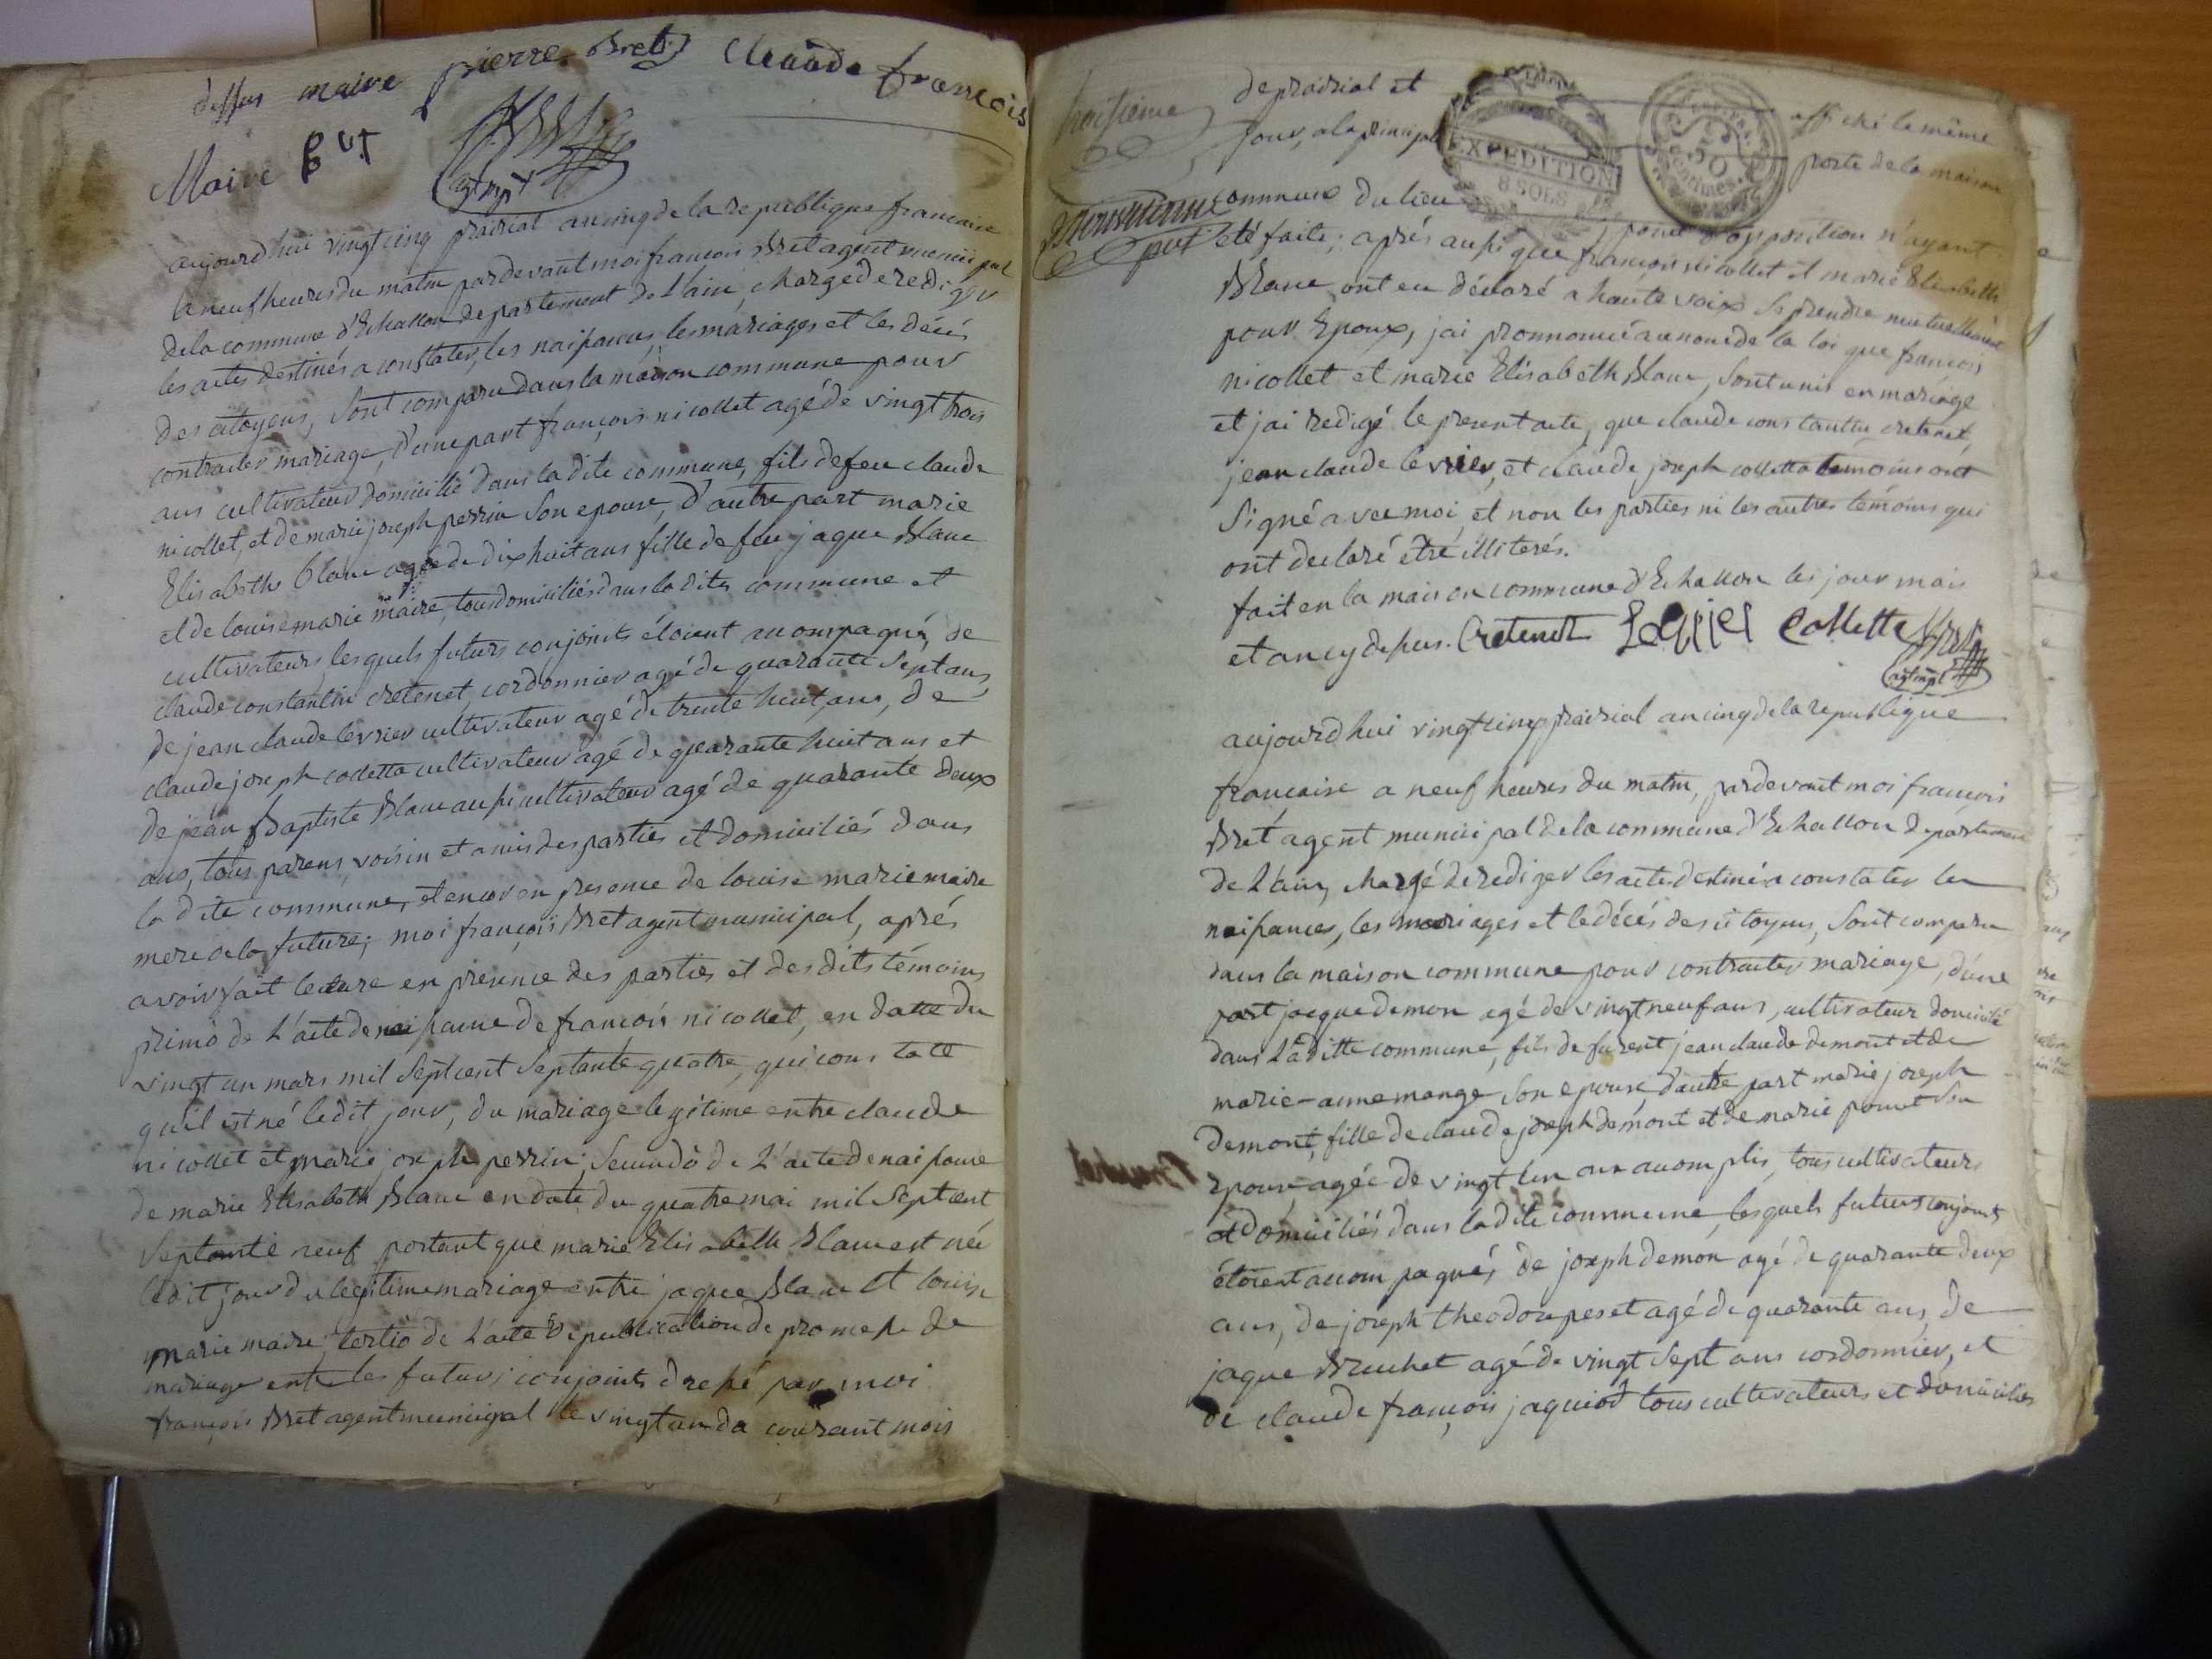 dessus maire pierre Bret Claude francois
Maire But
agt mpl
aujourd'hui vingt cinq prairial an cinq de la republique francaise
a neuf heures du matin pardevant moi francois Bret agent municipal
de la commune d'Echallon departement de L'ain, chargé de rediger
les actes destinés a constater, les naissances, les mariages et les décés
des citoyens, sont comparu dans la maison commune pour
contracter mariage, d'une part françois nicollet agé de vingt trois
ans cultivateur domicilié dans la dite commune, fils de feu claude
nicollet, et de marie joseph perrin son epouse, d'autre part marie
Elisabeth blanc agée de dix huit ans fille de feu jaque Blanc
et de louise marie maire, tous domiciliés dans la dite commune et
cultivateurs, lesquels futurs conjoints étoient accompagnés de
claude constantin cretenet, cordonnier agé de quarante sept ans,
de jean claude levrier cultivateur agé de trente huit ans, de
claude joseph colletta cultivateur agé de quarante huit ans et
de jean Baptiste Blanc aussi cultivateur agé de quarante deux
ans, tous parens, voisin et amis des parties et domiciliés dans
la dite commune, et encor en presence de louise marie maire
mere de la future; moi françois Bret agent municipal, aprés
avoir fait lecture en presence des parties et des dits témoins
primò de L'acte de naissance de françois nicollet, en datte du
vingt un mars mil sept cent septante quatre, qui constate
qu'il est né le dit jour, du mariage legitime entre claude
nicollet et marie joseph perrin; secundò de L'acte de naissance
de marie Elisabeth Blanc en date du quatre mai mil sept cent
septante neuf portant que marie Elisabeth Blanc est née
ledit jour du legitime mariage entre jaque Blanc et louise
marie maire; tertiò de L'acte de publication de promesse de
mariage entre les futurs conjoints dressé par moi
françois Bret agent municipal le vingt un du courant mois
huitieme
de prairial et affiché le même
jour, a la principale porte de la maison
EXPEDITION
8 SOLS
50
centimes
commune du lieu point d'opposition n'ayant
eté faite; aprés aussi que françois nicollet et marie Elisabeth
Blanc ont eu déclaré a haute voix se prendre mutuellement
pour Epoux, j'ai prononcé au nom de la loi que françois
nicollet et marie Elisabeth Blanc, sont unis en mariage
et j'ai redigé le present acte, que claude constantin cretenet,
jean claude levrier, et claude joseph colletta temoins ont
signé avec moi, et non les parties ni les autres témoins qui
ont declaré être illiterés.
fait en la maison commune d'Echallon les jour mois
et an cy dessus. Cretenet Levrier Colletta Bret
agt mpl
aujourd'hui vingt cinq prairial an cinq de la republique
francaise a neuf heures du matin, pardevant moi francois
Bret agent municipal de la commune d'Echallon departement
de L'ain, chargé de rediger les actes destiné a constater les
naissances, les mariages et le décés des citoyens, sont comparu
dans la maison commune pour contracter mariage, d'une
part jacque demon agé de vingt neuf ans, cultivateur domicilié
dans La ditte commune, fils de furent jean claude demont et de
marie-anne monge son epouse, d'autre part marie joseph
demont, fille de claude joseph démont et de marie poncet son
Epouse, agée de vingt un ans accomplis, tous cultivateurs
et domiciliés dans la dite commune, lesquels futurs conjoints
étoient accompagnés de joseph demon agé de quarante deux
ans, de joseph theodore peset agé de quarante ans, de
jaque Bruchet agé de vingt sept ans cordonnier, et
de claude françois jaquiod tous cultivateurs et domiciliés